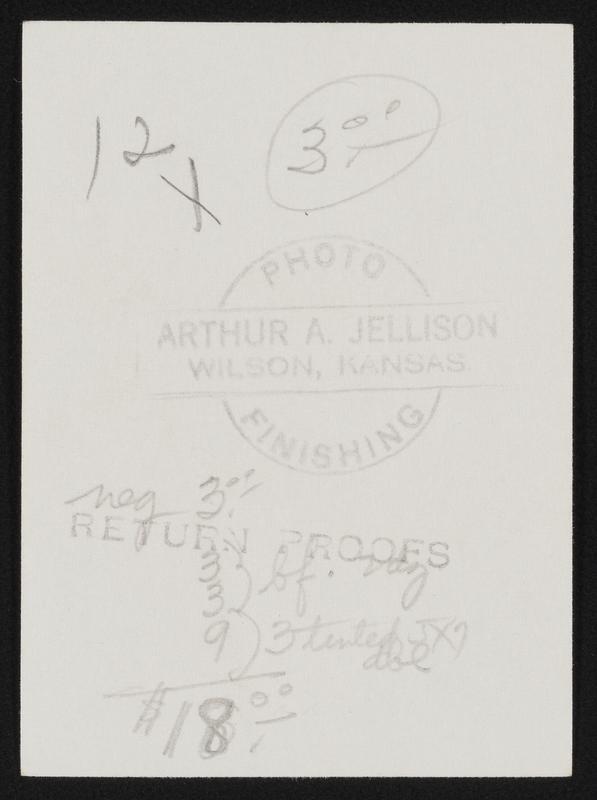 12 3.00
X
PHOTO
ARTHUR A. JELLISON
WILSON, KANSAS
FINISHING
neg 3.00
RETURN PROOFS
3
3 ) bf. neg
9 ) 3 tinted 5X7
dbl
$18.00